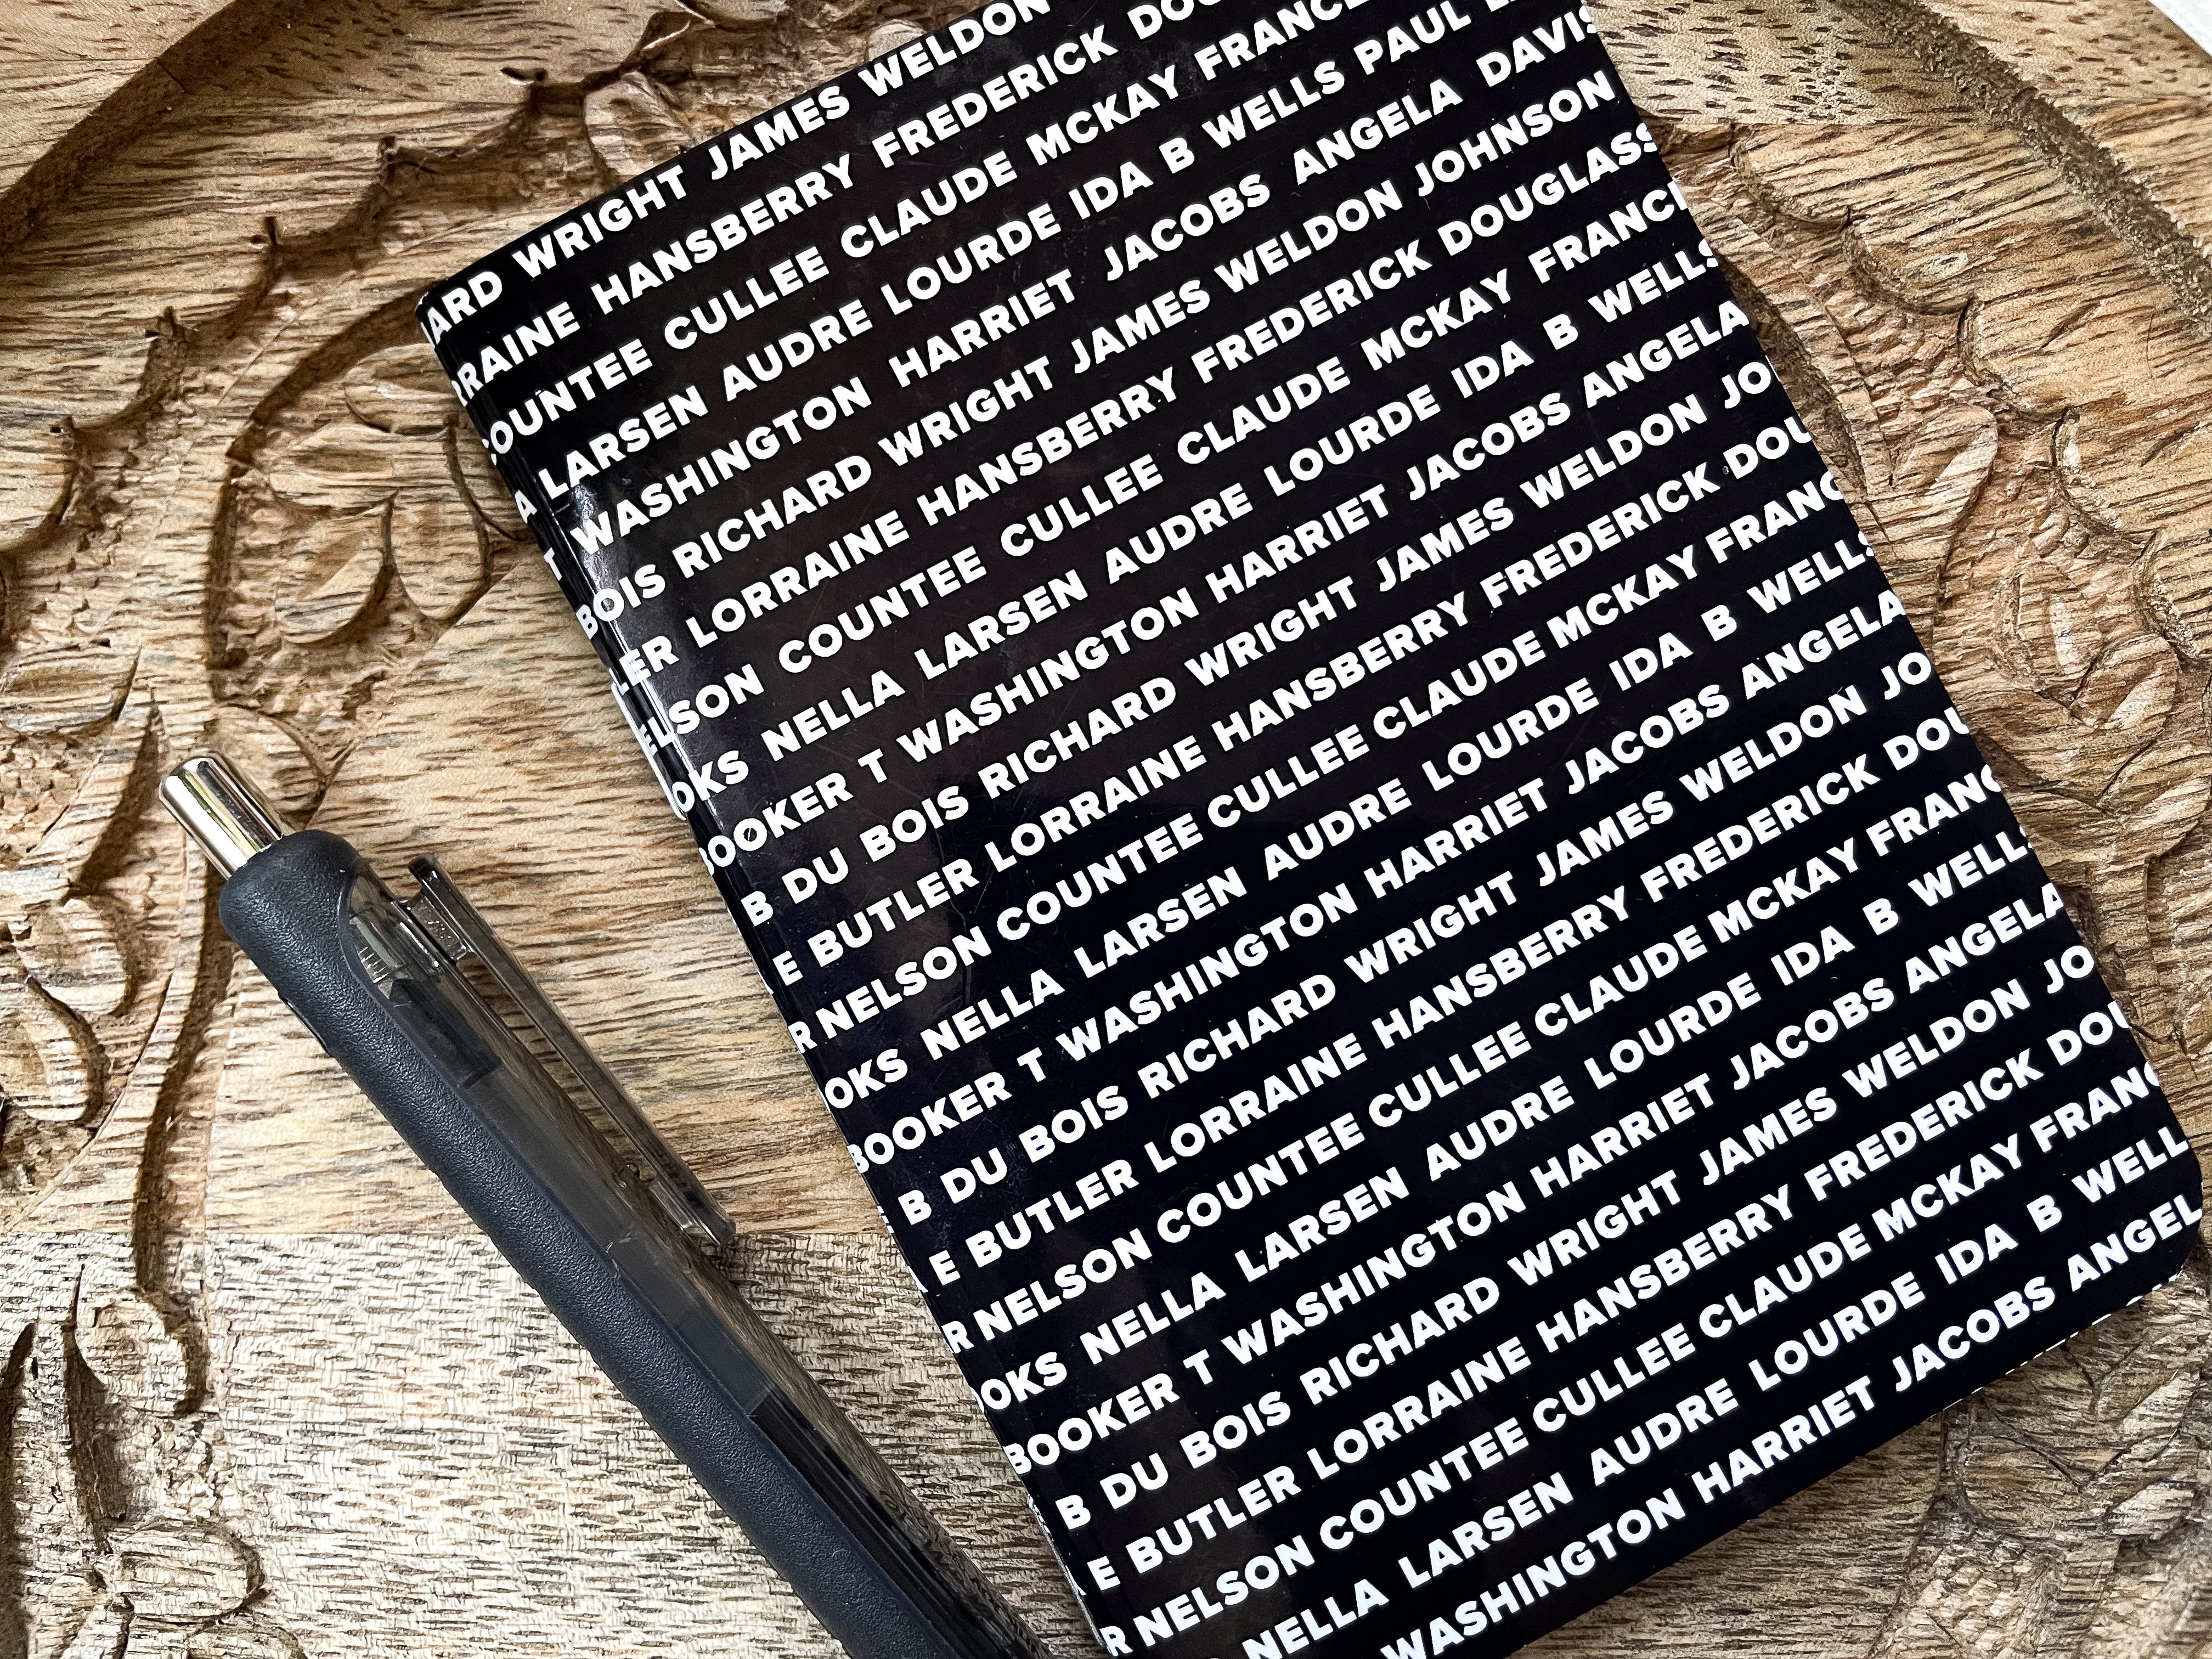 WRIGHT JAMES WELDON
HANSBERRY FREDERICK
COUNTEE CULLEE CLAUDE MCKAY
LARSEN AUDRE LOURDE IDA B WELLS PAUL
T WASHINGTON HARRIET JACOBS ANGELA DAVIS
BOIS RICHARD WRIGHT JAMES WELDON JOHNSON
LORRAINE HANSBERRY FREDERICK DOUGLASS
NELSON COUNTEE CULLEE CLAUDE MCKAY
NELLA LARSEN AUDRE LOURDE IDA B WELLS
BOOKER T WASHINGTON HARRIET JACOBS ANGELA
B DU BOIS RICHARD WRIGHT JAMES WELDON
E BUTLER LORRAINE HANSBERRY FREDERICK
NELSON COUNTEE CULLEE CLAUDE MCKAY
NELLA LARSEN AUDRE LOURDE IDA B WELLS
BOOKER T WASHINGTON HARRIET JACOBS ANGELA
B DU BOIS RICHARD WRIGHT JAMES WELDON
E BUTLER LORRAINE HANSBERRY FREDERICK
R NELSON COUNTEE CULLEE CLAUDE MCKAY
NELLA LARSEN AUDRE LOURDE IDA B WELLS
BOOKER T WASHINGTON HARRIET JACOBS ANGELA
B DU BOIS RICHARD WRIGHT JAMES WELDON
E BUTLER LORRAINE HANSBERRY FREDERICK
R NELSON COUNTEE CULLEE CLAUDE MCKAY
NELLA LARSEN AUDRE LOURDE IDA B
WASHINGTON HARRIET JACOBS